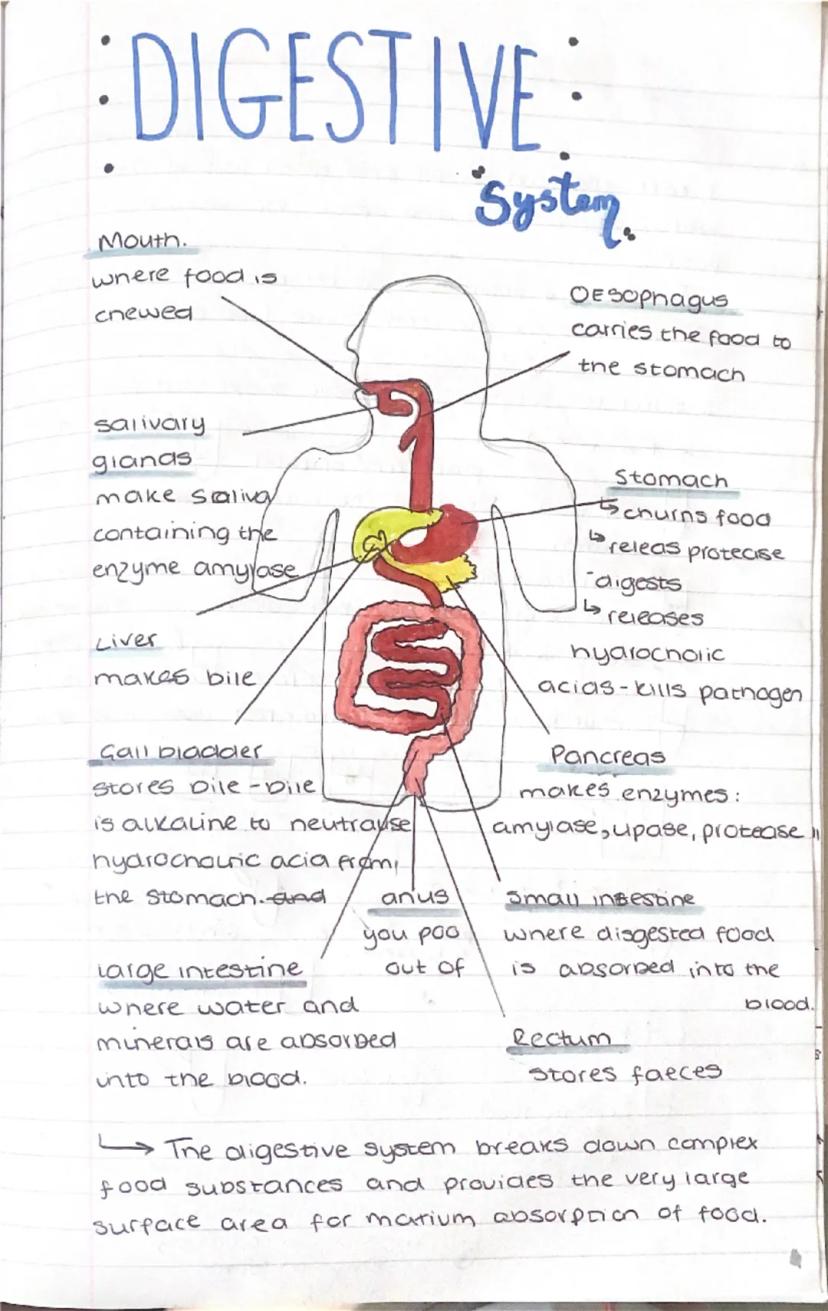 DIGESTIVE
System.
Mouth.
where food is
chewed
salivary
glands
make saliva
containing the
enzyme amylase
Liver
makes bile
Gall bladder
stores bile - bile
is alkaline to neutralise
hydrochloric acid from
the stomach. and
large intestine
where water and
minerals are absorbed
into the blood.
anus
you poo
out of
OESophagus
carries the food to
the stomach
Stomach
↳ churns food
↳ releas protease
- digests
↳ releases
hydrochloric
acids - kills pathogen
Pancreas
makes enzymes:
amylase, lipase, protease
Small intestine
where disgested food
is absorbed into the
blood.
Rectum
stores faeces
↳ The digestive system breaks down complex
food substances and provides the very large
surface area for maxium absorption of food.